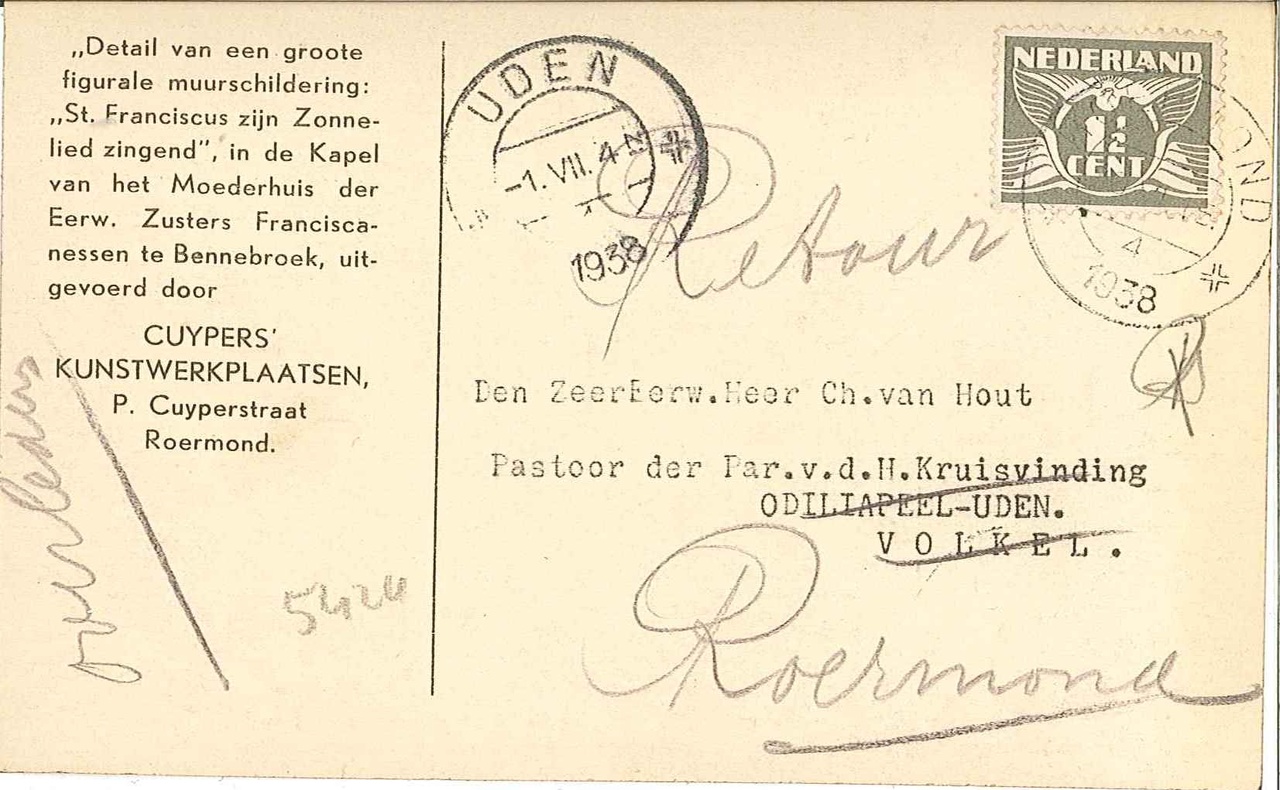 „Detail van een groote
figurale muurschildering:
„St. Franciscus zijn Zonne-
lied zingend”, in de Kapel
van het Moederhuis der
Eerw. Zusters Francisca-
nessen te Bennebroek, uit-
gevoerd door
CUYPERS'
KUNSTWERKPLAATSEN,
P. Cuyperstraat
Roermond.
overleden
5424
UDEN
-1.VII. 4
1938
NEDERLAND
1½
CENT
OND
4
1938
Retour
Den ZeerEerw.Heer Ch.van Hout
Pastoor der Par.v.d.H.Kruisvinding
ODILIAPEEL-UDEN.
VOLKEL.
Roermond